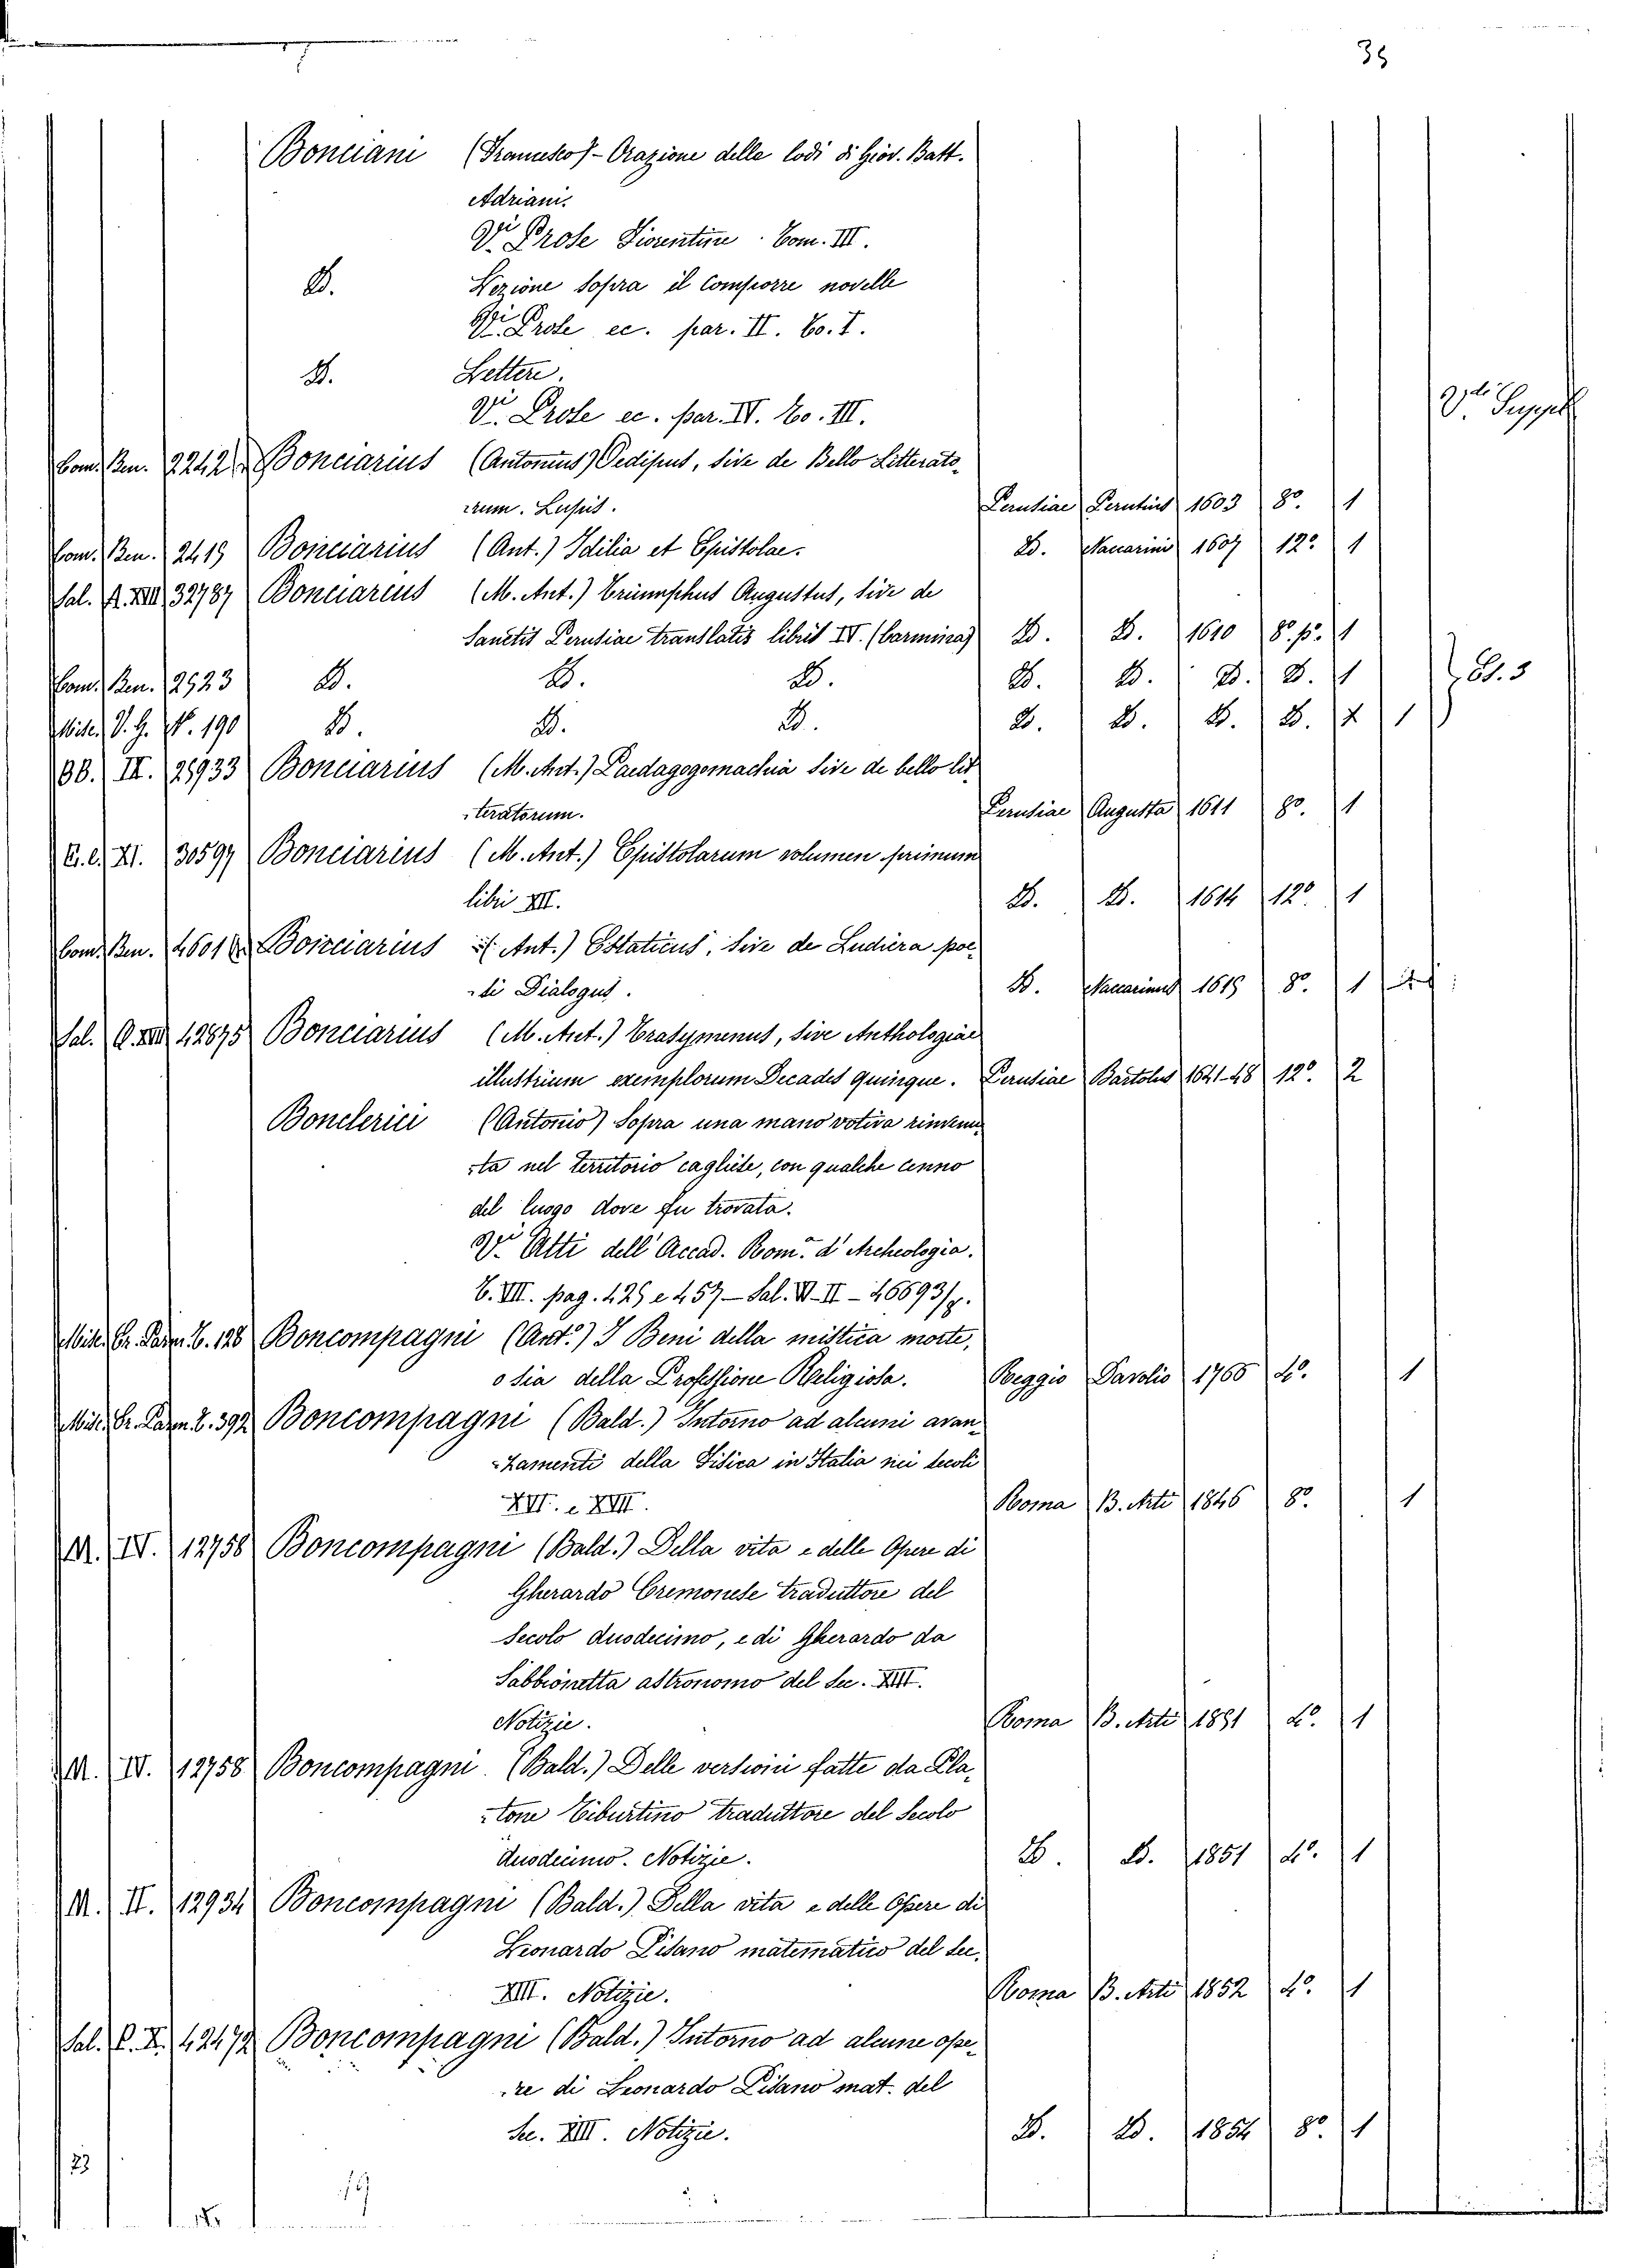 35
Bonciani (Francesco) - Orazione delle lodi di Giov. Batt.
Adriani.
Vi. Prose Fiorentine. Tom. III.
D. Lezione sopra il comporre novelle
Vi. Prose ec. par. II. To. I.
D. Lettere.
Vi. Prose ec. par. IV. To. III.
Vdi Suppl
Com. Ben. 2242 Bonciarius (Antonius) Oedipus, sive de Bello Litterato-
rum. Lusus. Perusiae Perutius 1603 8o. 1
Com. Ben. 2419 Bonciarius (Ant.) Idilia et Epistolae. D. Naccarini 1607 12o. 1
Sal. A. XIII 32787 Bonciarius (M. Ant.) Triumphus Augustus, sive de
Sanctis Perusiae translatis libris IV. (Carmina) D. D. 1610 8o. p. 1
Com. Ben. 2523 D. D. D. D. D. D. D. 1
Misc. V. G. N. 190 D. D. D. D. D. D. D. 1
Es. 3
OB. II. 25933 Bonciarius (M. Ant.) Paedagogomachia sive de bello lit-
teratorum. Perusiae Augusta 1611 8o. 1
E. e. XI. 30597 Bonciarius (M. Ant.) Epistolarum volumen primum
libri XII. D. D. 1614 12o. 1
Com. Ben. 4601 Bonciarius (Ant.) Estaticus, sive de Ludicra poe-
si Dialogus. D. Naccarinus 1615 8o. 1
Sal. Q. XIII 42695 Bonciarius (M. Ant.) Trasymenus, sive Anthologiae
illustrium exemplorum Decades quinque. Perusiae Bartolus 1641-48 12o. 2
Bonclerici (Antonio) Sopra una mano votiva rinvenu-
ta nel territorio cagliese, con qualche cenno
del luogo dove fu trovata.
Vi. Atti dell' Accad. Roma. d' Archeologia.
T. VII. pag. 425 e 457 - Sal. VI-II - 46693/7.
Misc. Gr. Parm. T. 128 Boncompagni (Anto.) I Beni della mistica morte,
o sia della Professione Religiosa. Reggio Davolio 1765 4o. 1
Misc. Gr. Parm. T. 392 Boncompagni (Bald.) Intorno ad alcuni avan-
zamenti della Fisica in Italia nei secoli
XVI. e XVII. Roma B. Arti 1846 8o. 1
M. IV. 12758 Boncompagni (Bald.) Della vita e delle Opere di
Gherardo Cremonese traduttore del
secolo duodecimo, e di Gherardo da
Sabbionetta astronomo del sec. XIII.
Notizie. Roma B. Arti 1851 4o. 1
M. IV. 12758 Boncompagni. (Bald.) Delle versioni fatte da Pla-
tone Tiburtino traduttore del Secolo
duodecimo. Notizie. D. D. 1851 4o. 1
M. II. 12934 Boncompagni (Bald.) Della vita e delle Opere di
Leonardo Pisano matematico del sec.
XIII. Notizie. Roma B. Arti 1852 4o. 1
Sal. P. X. 42472 Boncompagni (Bald.) Intorno ad alcune ope-
re di Leonardo Pisano mat. del
Sec. XIII. Notizie. D. D. 1854 8o. 1
23
19